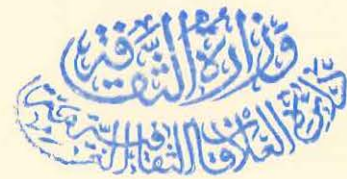 وزارة الثقافة
دائرة العلاقات الثقافية